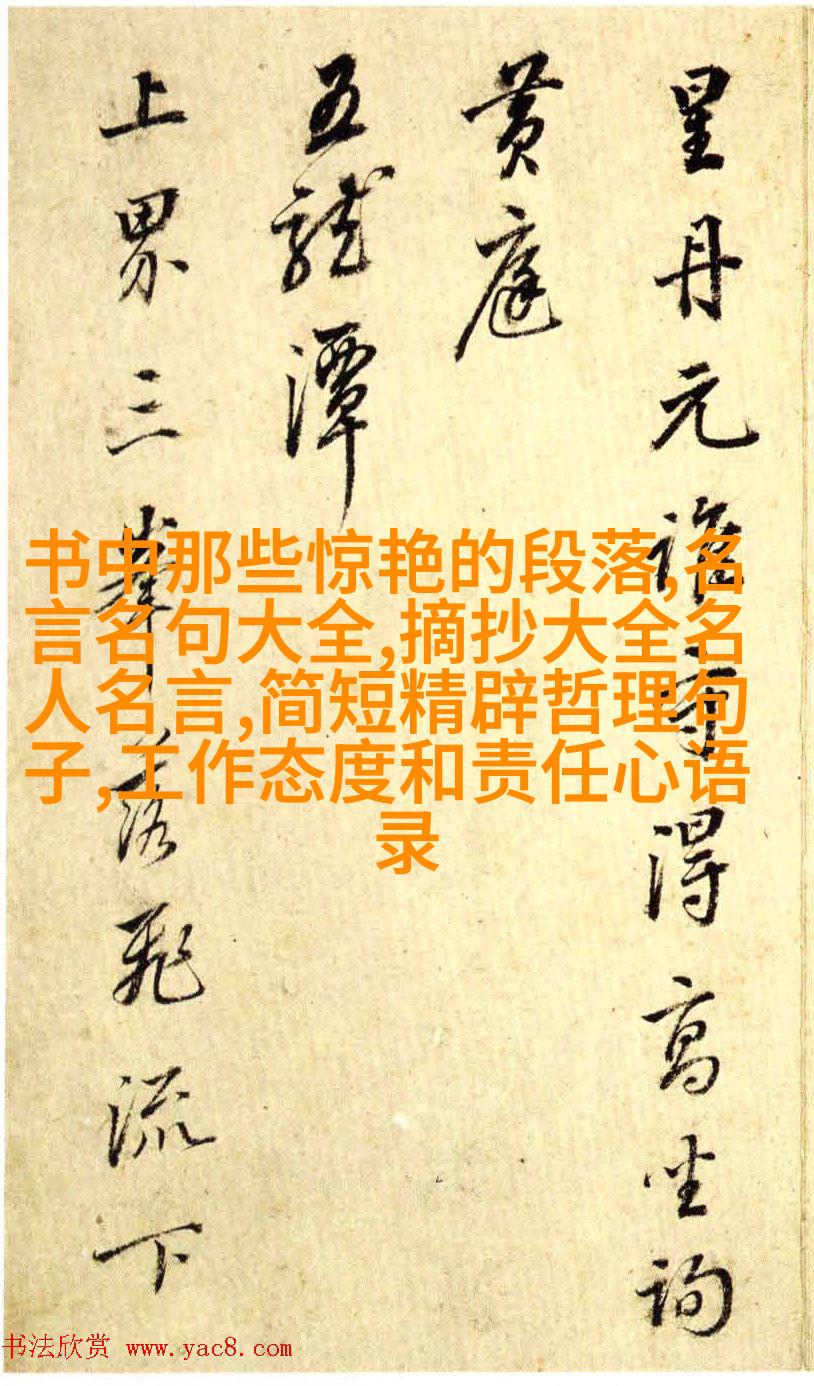 星丹元誰得高坐詢
黃庭
五龍潭
上界三峯落飛流下
书中那些惊艳的段落,名
言名句大全,摘抄大全名
人名言,简短精辟哲理句
子,工作态度和责任心语
录
书法欣赏 www.yac8.com